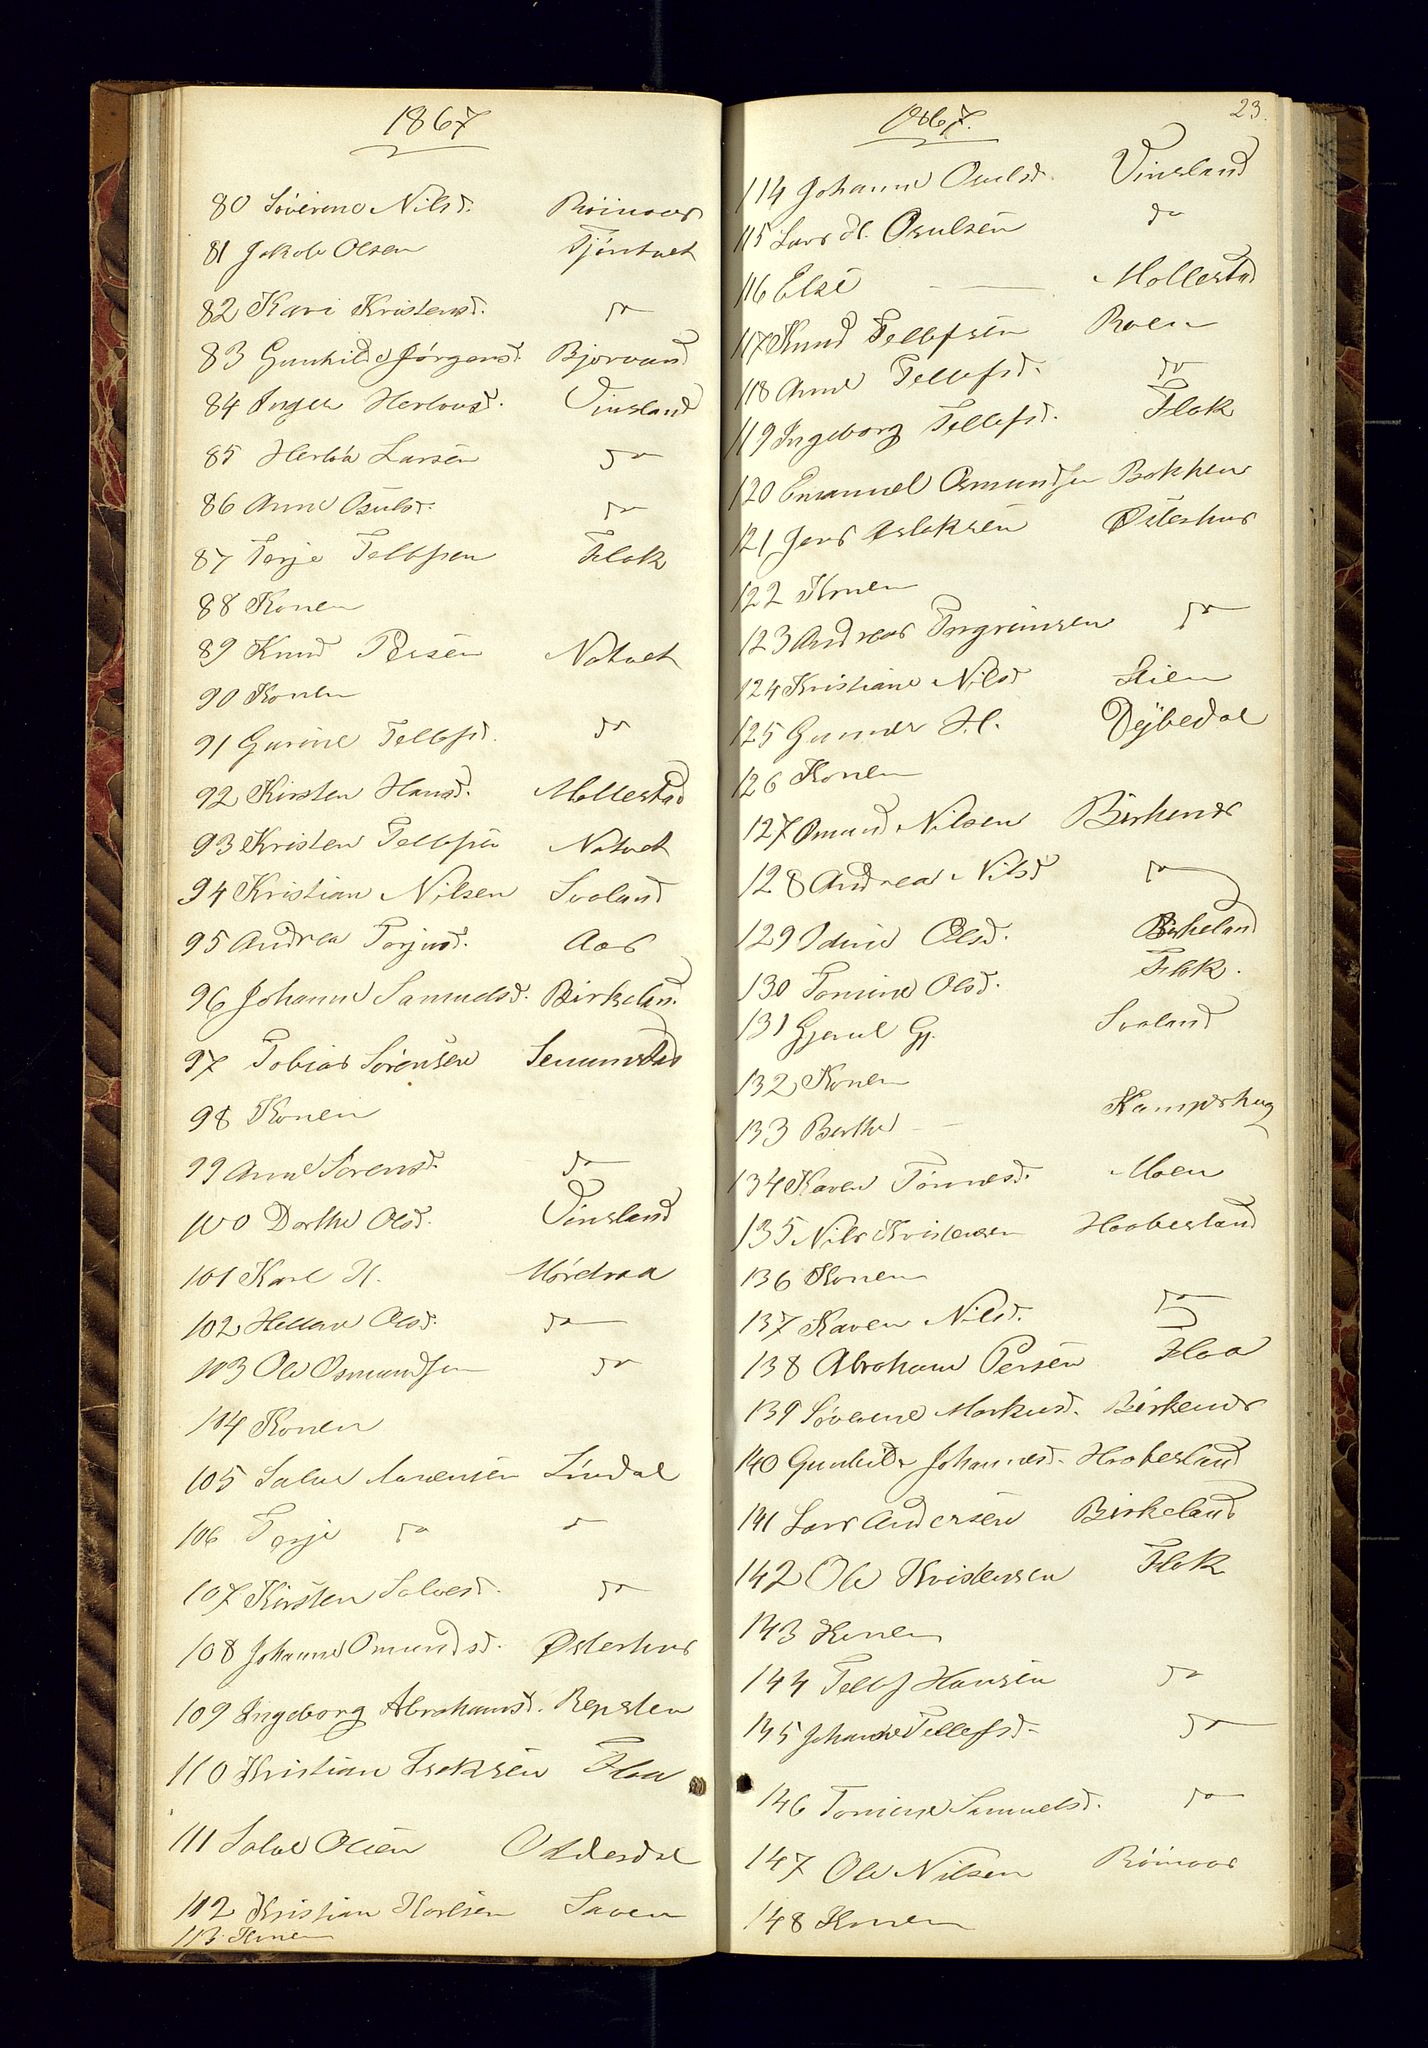 1867
80 Søverine Nilsd. Röinaas
81 Jakob Olsen Tjöntvet
82 Kari Kristensd. do
83 Gunhild Jörgensd. Bjorvand
84 Inger Herlovsd. Vinsland
85 Herlov Larsen do
86 Anne Osulsd. do
87 Terje Tellefsen Flak
88 Konen
89 Knud Persen Natvet
90 Konen
91 Gurine Tellefsd. do
92 Kirsten Hansd. Mollestad
93 Kristen Tellefsen Natvet
94 Kristian Nilsen Svaland
95 Andrea Terjusd. Aas
96 Johanne Samuelsd. Birkeland
97 Tobias Sørensen Senumstad
98 Konen
99 Anne Sørensd. do
100 Dorthe Olsd. Vinsland
101 Karl H.
102 Hellene Olsd. do
103 Ole Osmundsen do
104 Konen
105 Salve Lindal
106 Terje do do
107 Kirsten Salvesd. do
108 Johanne Omundsd. Østerhus
109 Ingeborg Abrahamsd. Repsten
110 Kristian Isaksen Flaa
111 Salve Olsen Oddersdal
112 Kristian Karlsen Saven
113 Konen
1867. 23.
114 Johanne Osulsd. Vinsland
115 Lars H. Osulsen do
116 Else — Mollestad
117 Knud Tellefsen Roen
118 Anne Tellefsd. do
119 Ingeborg Tellefsd. Flak
120 Emanuel Osmundsen Bakken
121 Jens Aslaksen Østerhus
122 Konen
123 Andreas Torgrimsen do
124 Kristiane Nilsd
125 Gunner H. Dybedal
126 Konen
127 Omund Nilsen Birkenes
128 Andrea Nilsd do
129 Olsd. Birkeland
130 Tomine Olsd. Flak.
131 Gj. Svaland
132 Konen
133 Berthe — Kampehaug
134 Karen Tønnesd. Moen
135 Nils Kristensen Haabesland
136 Konen
137 Karen Nilsd. do
138 Abraham Persen Flaa
139 Søverine Markusd. Birkenes
140 Gunhilde Johannesd. Haabesland
141 Lars Andersen Birkeland
142 Ole Kristensen Flak
143 Konen
144 Tellef Hansen do
145 Johanne Tellefsd. do
146 Tomine Samuelsd. do
147 Ole Nilsen Röinaas
148 Konen